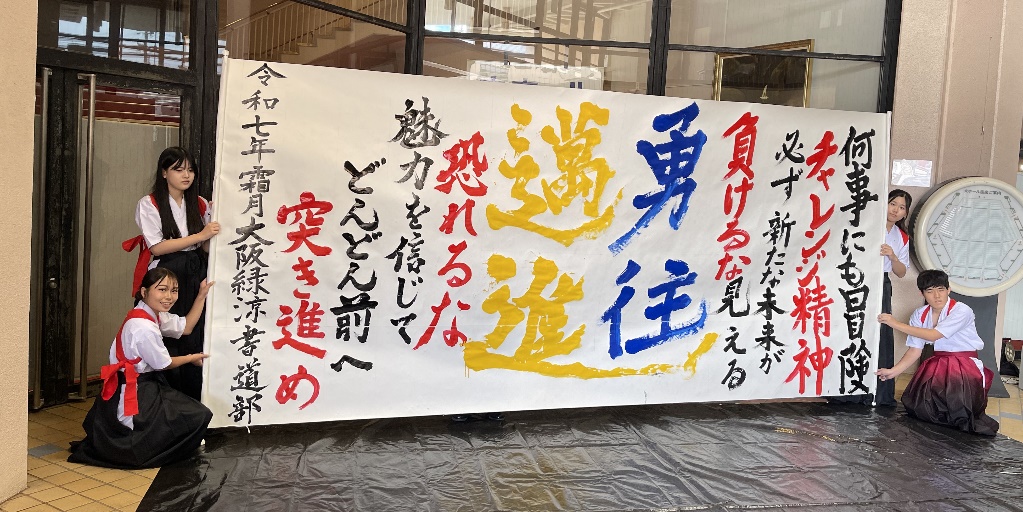 何事にも冒険
チャレンジ精神
必ず 新たな未来が
見える
負けるな
勇往
邁進
恐れるな
魅力を信じて
どんどん前へ
突き進め
令和七年 霜月 大阪緑涼書道部